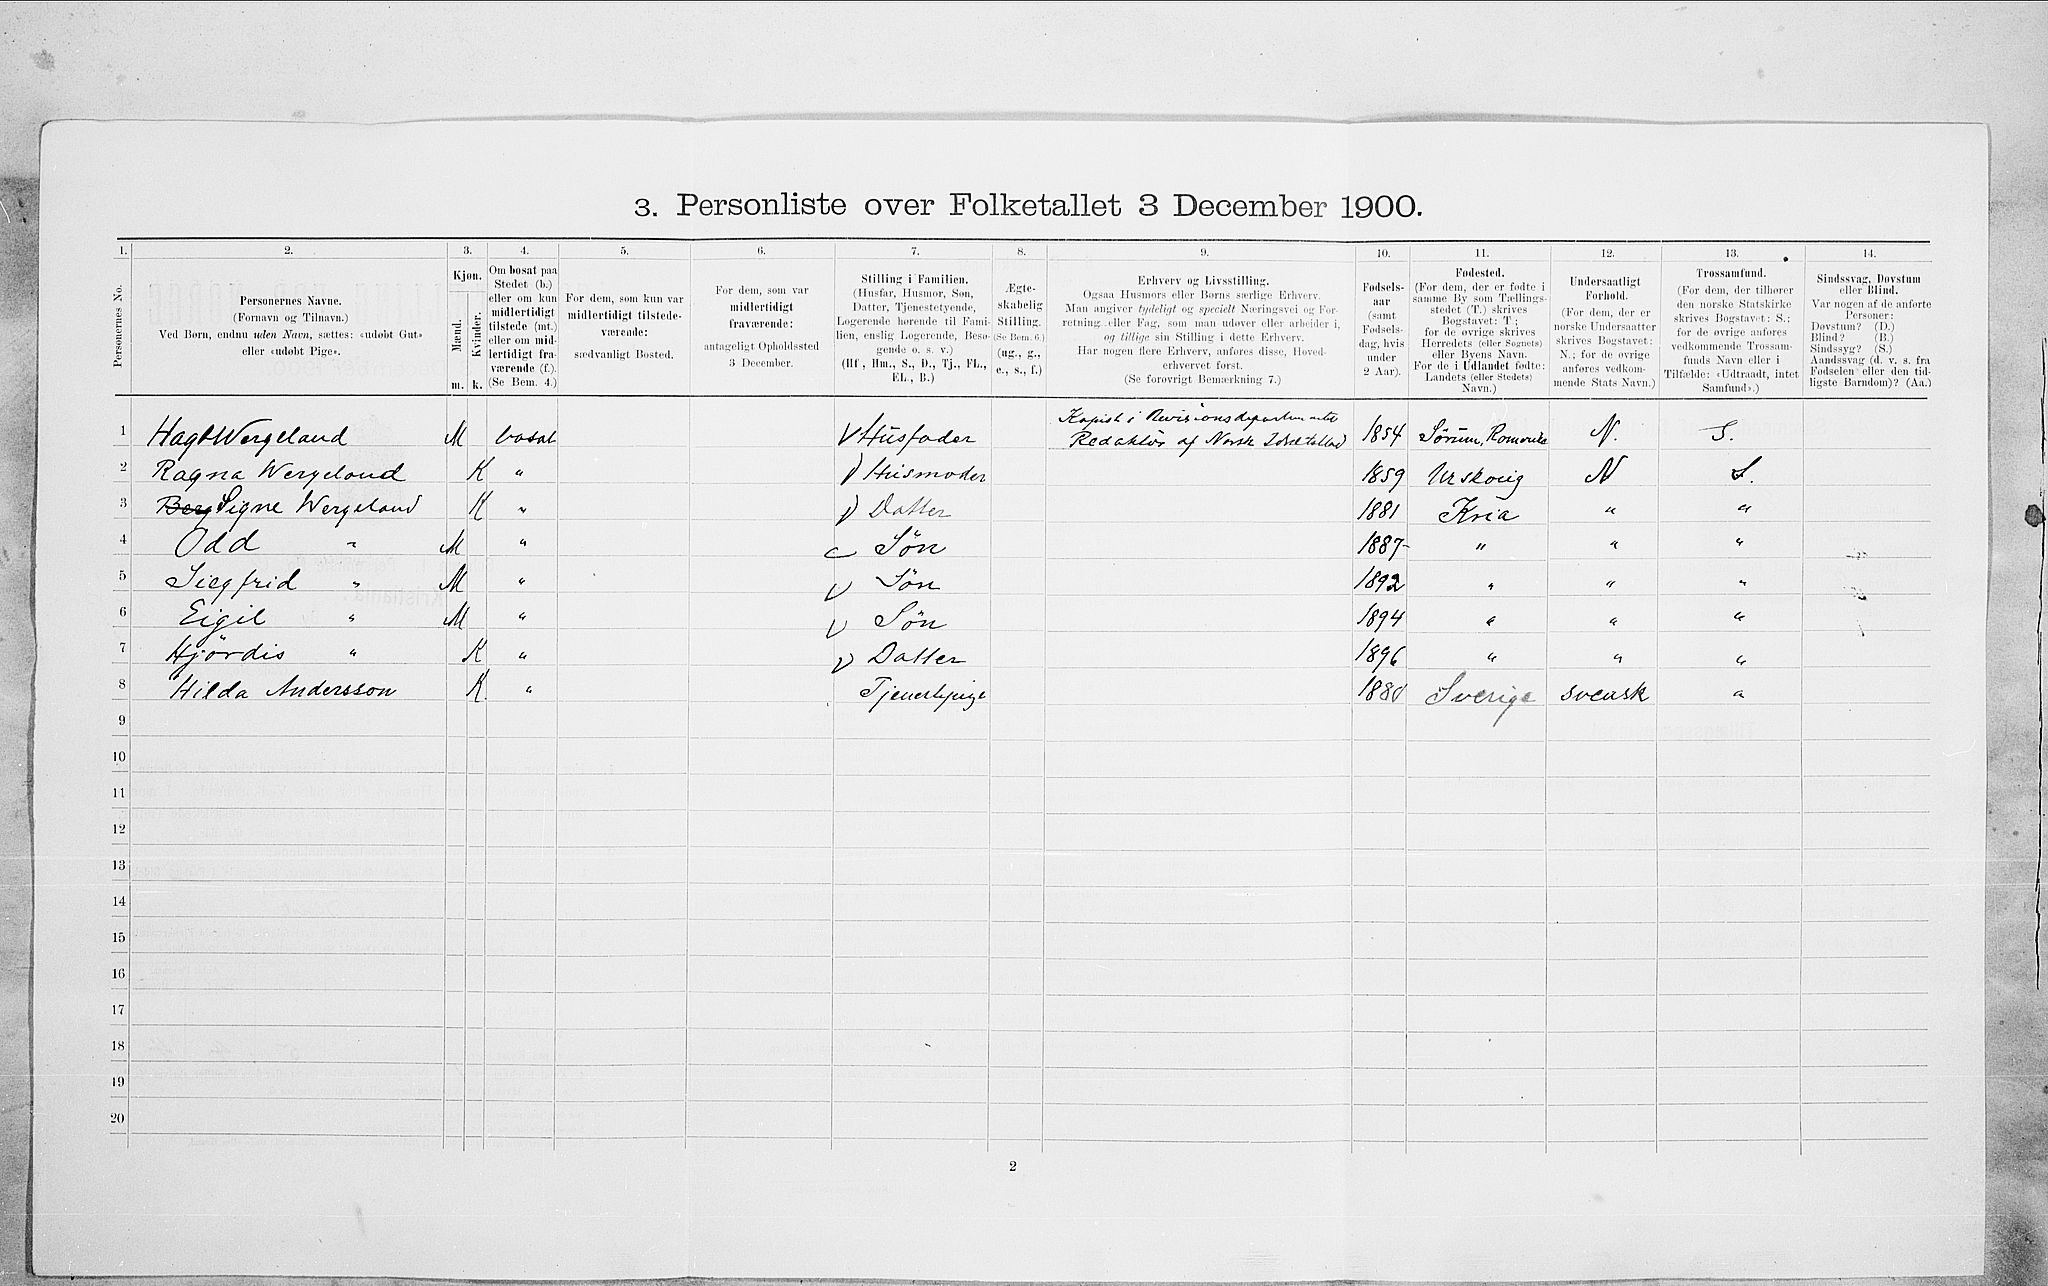 3. Personliste over Folketallet 3 December 1900.
1. 2. 3. 4. 5. 6. 7. 8. 9. 10. 11. 12. 13. 14.
Personernes No.
Personernes Navne.
(Fornavn og Tilnavn.)
Ved Børn, endnu uden Navn, sættes: «udøbt Gut»
eller «udøbt Pige».
Kjøn.
Mænd.
Kvinder.
m. k.
Om bosat paa
Stedet (b.)
eller om kun
midlertidigt
tilstede (mt.)
eller om mid-
lertidigt fra-
værende (f.).
(Se Bem. 4.)
For dem, som kun var
midlertidigt tilstede-
værende:
sædvanligt Bosted.
For dem, som var
midlertidigt
fraværende:
antageligt Opholdssted
3 December.
Stilling i Familien.
(Husfar, Husmor, Søn,
Datter, Tjenestetyende,
Logerende hørende til Fami-
lien, enslig Logerende, Besø-
gende o. s. v.)
(Hf., Hm., S., D., Tj., FL.,
EL., B.)
Ægte-
skabelig
Stilling.
(Se Bem. 6.)
(ug., g.,
e., s., f.)
Erhverv og Livsstilling.
Ogsaa Husmors eller Børns særlige Erhverv.
Man angiver tydeligt og specielt Næringsvei og For-
retning eller Fag, som man udøver eller arbeider i,
og tillige sin Stilling i dette Erhverv.
Har nogen flere Erhverv, anføres disse, Hoved-
erhvervet først.
(Se forøvrigt Bemærkning 7.)
Fødsels-
aar
(samt
Fødsels-
dag, hvis
under
2 Aar).
Fødested.
(For dem, der er fødte i
samme By som Tællings-
stedet (T.) skrives
Bogstavet: T;
for de øvrige skrives
Herredets (eller Sognets)
eller Byens Navn.
For de i Udlandet fødte:
Landets (eller Stedets)
Navn.)
Undersaatligt
Forhold.
(For dem, der er
norske Undersaatter
skrives Bogstavet:
N.; for de øvrige
anføres vedkom-
mende Stats Navn.)
Trossamfund.
(For dem, der tilhører
den norske Statskirke
skrives Bogstavet: S.;
for de øvrige anføres
vedkommende Trossam-
funds Navn eller i
Tilfælde: «Udtraadt, intet
Samfund».)
Sindssvag, Døvstum
eller Blind.
Var nogen af de anførte
Personer:
Døvstum? (D.)
Blind? (B.)
Sindssyg? (S.)
Aandssvag (d. v. s. fra
Fødselen eller den tid-
ligste Barndom)? (Aa.)
1 Wergeland M bosat Husfader Kopist i Revisionsdepartementet
Redaktör af Norsk 1854 Sørum, Romerike N. S.
2 Ragna Wergeland K " Husmoder 1859 Urskoug N S.
3 Berg Signe Wergeland K " Datter 1881 Kria " "
4 Odd " M " Søn 1887 " " "
5 Siegfrid " M " Søn 1892 " " "
6 Eigil " M " Søn 1894 " " "
7 Hjördis " K " Datter 1896 " " "
8 Hilda Andersson K. " Tjenestepige Sverige svensk "
9
10
11
12
13
14
15
16
17
18
19
20
2